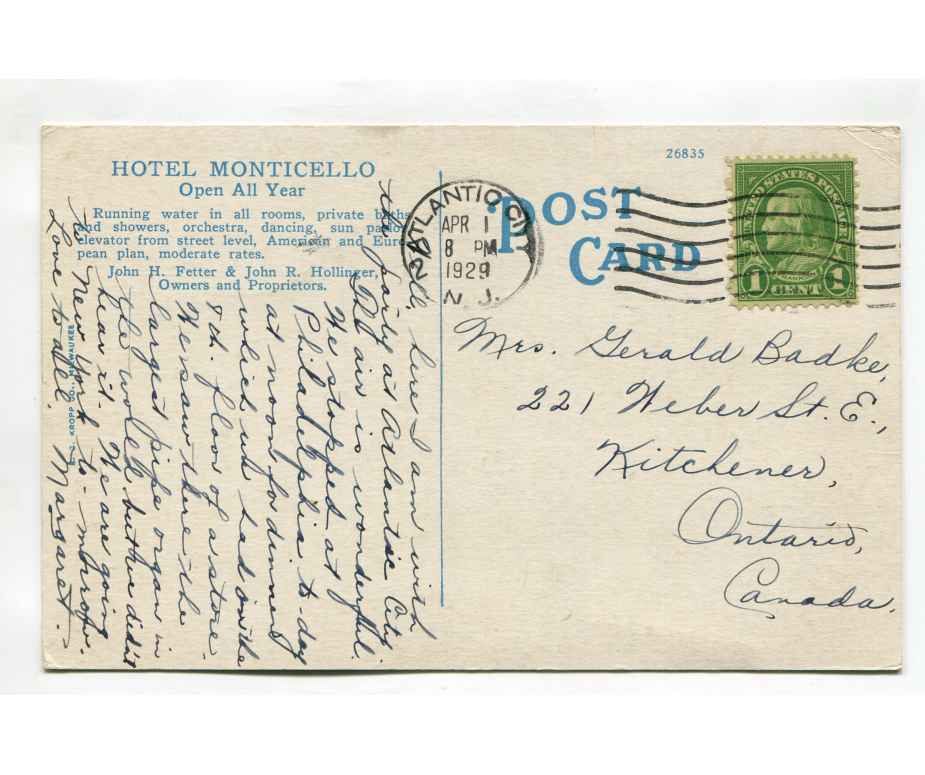 HOTEL MONTICELLO
Open All Year
Running water in all rooms, private baths
and showers, orchestra, dancing, sun parlor
elevator from street level, American and Euro-
pean plan, moderate rates.
John H. Fetter & John R. Hollinger,
Owners and Proprietors.
E. C. KROPP CO., MILWAUKEE
Well, here I am with
the party at Atlantic City.
The air is wonderful.
We stopped at
Philadelphia to-day
at noon for dinner
which we had on the
7th. floor of a store.
We saw there the
largest pipe organ in
the world but we didn't
hear it. We are going
to New York to-morrow.
Love to all. Margaret.
26835
POST
CARD
ATLANTIC CITY
APR 1
8 PM
1929
N. J.
2
UNITED STATES POSTAGE
FRANKLIN
1 CENT 1
Mrs. Gerald Badke,
221 Weber St. E.,
Kitchener,
Ontario,
Canada.